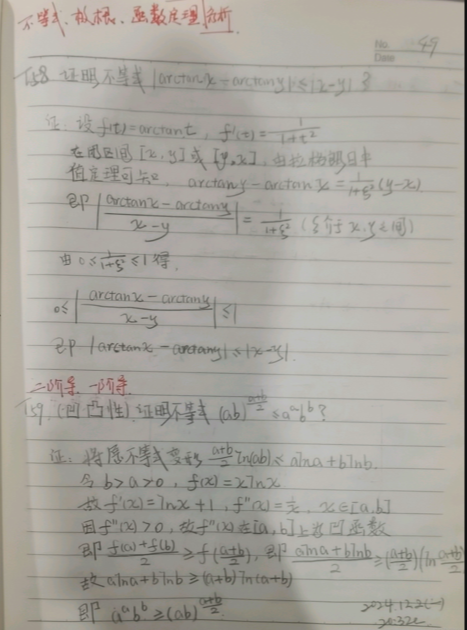 不等式、放缩、函数定理解析
No. 49
Date
158. 证明不等式 |arctanx-arctany|≤|x-y|?
证: 设f(t)=arctant, f'(t)=1/(1+t²)
在闭区间[x,y]或[y,x], 由拉格朗日中
值定理可知, arctany-arctanx=1/(1+ξ²)(y-x)
即|(arctanx-arctany)/(x-y)|=1/(1+ξ²) (ξ介于x,y之间)
由0≤1/(1+ξ²)≤1得,
0≤|(arctanx-arctany)/(x-y)|≤1
即|arctanx-arctany|≤|x-y|.
二阶导 一阶导
159. (凹凸性) 证明不等式 (ab)^((a+b)/2)≤a^a b^b?
证: 将原不等式变形 (a+b)/2 ln(ab)≤alna+blnb.
令b>a>0, f(x)=xlnx
故f'(x)=lnx+1, f''(x)=1/x, x∈[a,b]
因f''(x)>0, 故f''(x)在[a,b]上为凹函数
即(f(a)+f(b))/2≥f((a+b)/2), 即(alna+blnb)/2≥((a+b)/2)(ln (a+b)/2)
故alna+blnb≥(a+b)ln(a+b)
即a^a b^b≥(ab)^((a+b)/2).
2024.12.2(一)
20:32